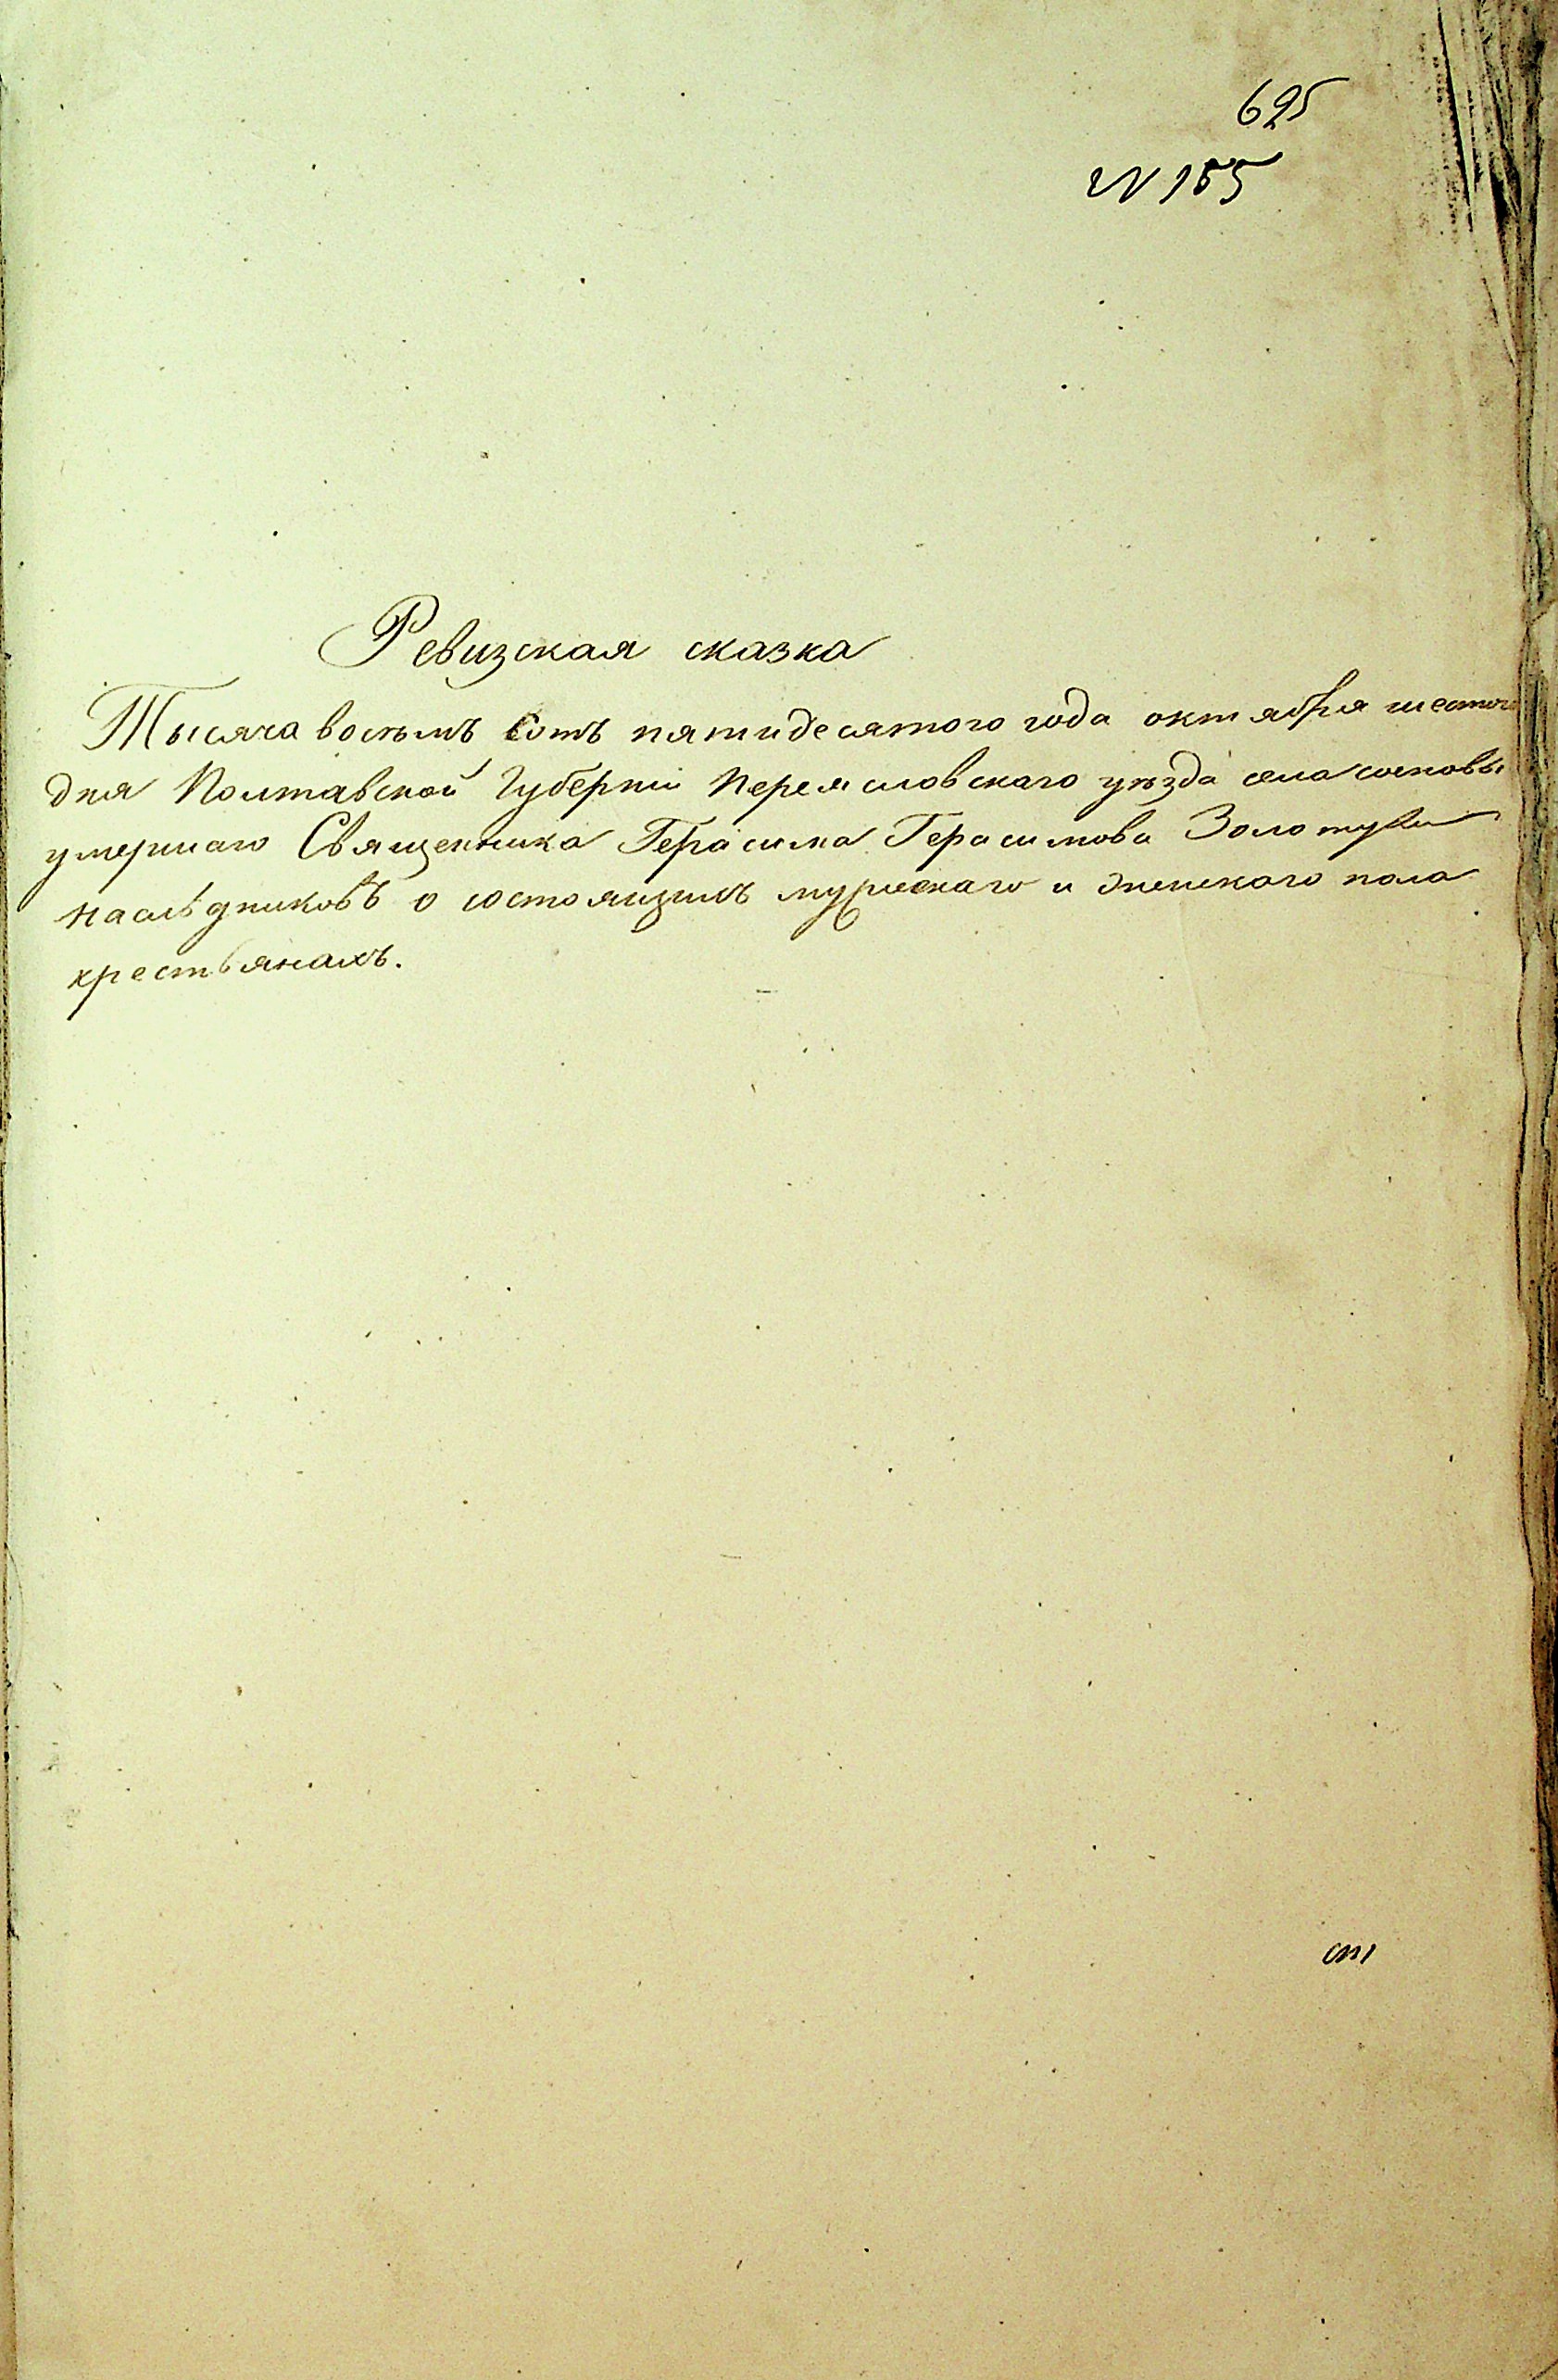 695
N 155
Ревизская сказка
Тысяча восемъ сотъ пятидесятого года октября шестого
дня Полтавской Губерніи Переясловскаго уѣзда села сосновы
умершаго Священника Герасима Герасимова Золотухи
наслѣдниковъ о состоящихъ мужескаго и женскаго пола
крестьянахъ.